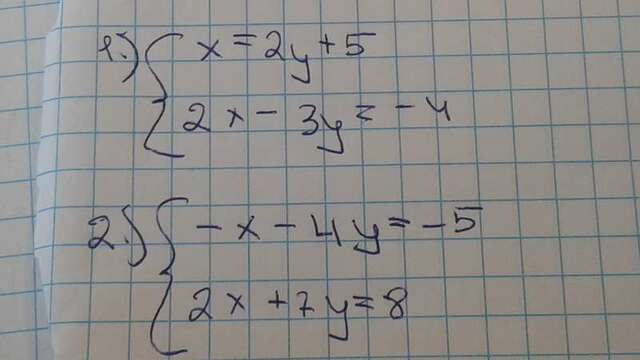 1.) { x = 2y + 5
2x - 3y = -4
2.) { -x - 4y = -5
2x + 7y = 8